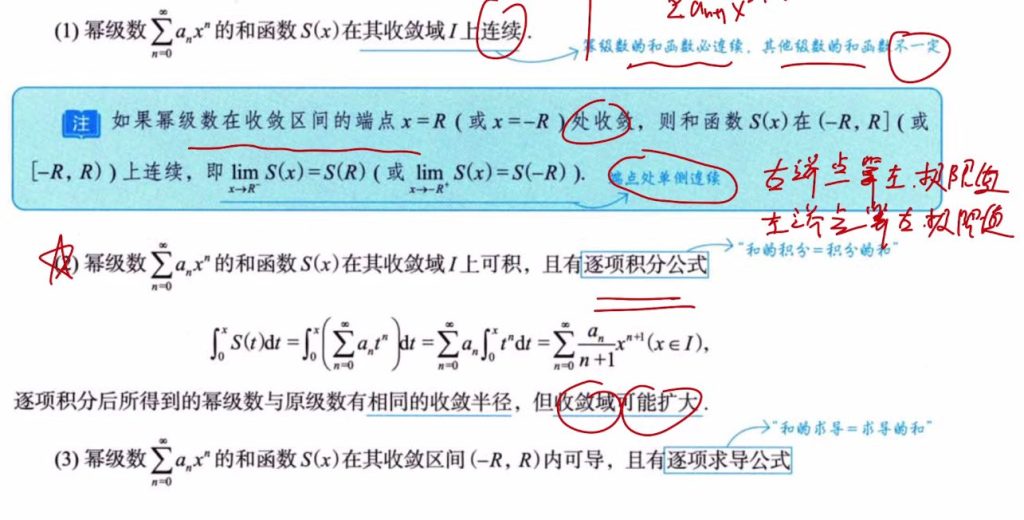 Σaₙ₊₁x
(1) 幂级数∑_{n=0}^{∞}aₙxⁿ的和函数S(x)在其收敛域I上连续.
幂级数的和函数必连续，其他级数的和函数不一定
注 如果幂级数在收敛区间的端点x=R（或x=-R）处收敛，则和函数S(x)在(-R, R]（或
[-R, R)）上连续，即lim_{x→R⁻} S(x)=S(R)（或lim_{x→-R⁺} S(x)=S(-R)）. 端点处单侧连续
右端点算左极限值
左端点算右极限值
"和的积分=积分的和"
(2) 幂级数∑_{n=0}^{∞}aₙxⁿ的和函数S(x)在其收敛域I上可积，且有逐项积分公式
∫₀ˣS(t)dt=∫₀ˣ(∑_{n=0}^{∞}aₙtⁿ)dt=∑_{n=0}^{∞}aₙ∫₀ˣtⁿdt=∑_{n=0}^{∞}\frac{aₙ}{n+1}xⁿ⁺¹(x∈I),
逐项积分后所得到的幂级数与原级数有相同的收敛半径，但收敛域可能扩大.
"和的求导=求导的和"
(3) 幂级数∑_{n=0}^{∞}aₙxⁿ的和函数S(x)在其收敛区间(-R, R)内可导，且有逐项求导公式